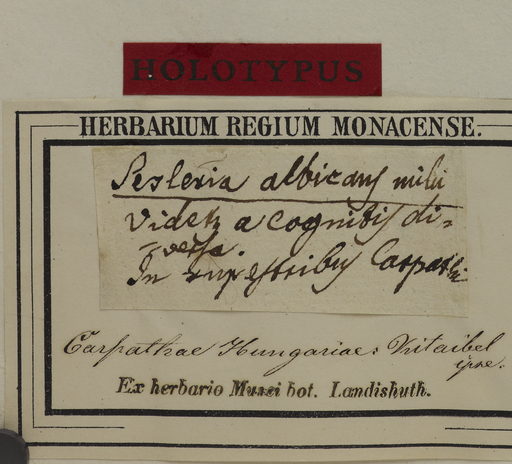 HOLOTYPUS
HERBARIUM REGIUM MONACENSE.
Sesleria albicans mihi
videtr a cognitis di=
=versa.
In rupestribus Carpathi
Carpathae Hungariae: Kitaibel
ipse.
Ex herbario Musei bot. Landishuth.